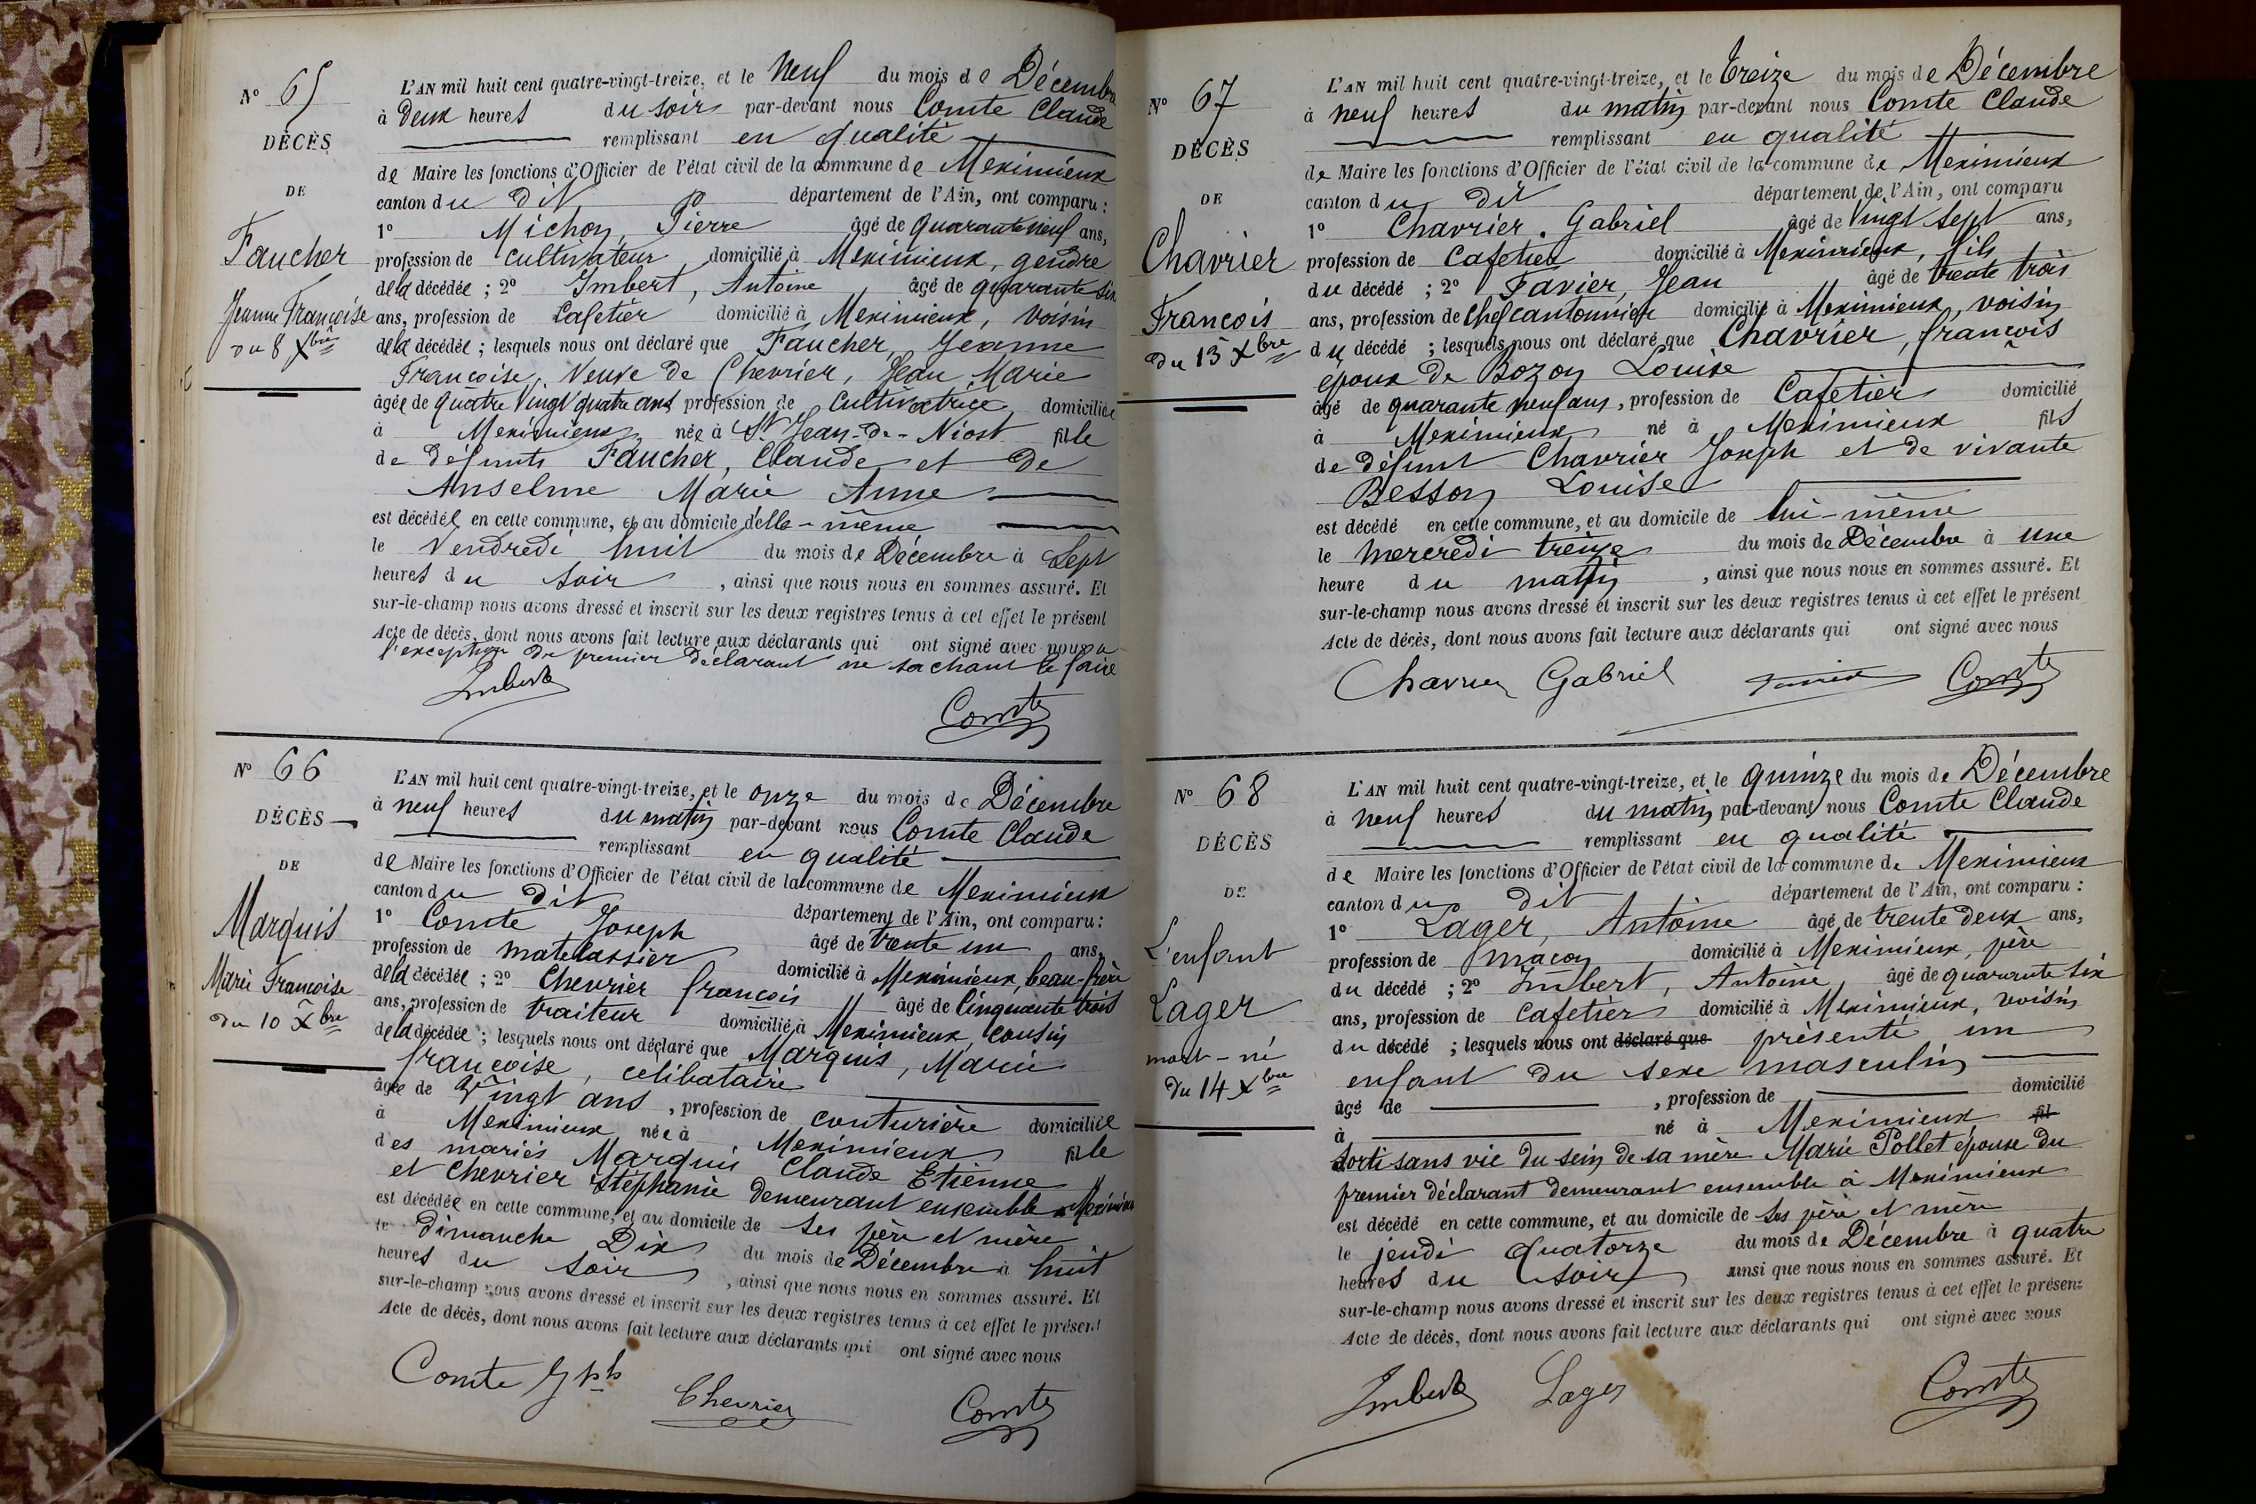 N° 65
DÉCÈS
DE
Faucher
Jeanne Françoise
du 8 Xbre
L'AN mil huit cent quatre-vingt-treize, et le neuf du mois de Décembre
à Deux heures du soir par-devant nous Comte Claude
remplissant en qualité
de Maire les fonctions d'Officier de l'état civil de la commune de Meximieux
canton du Dit département de l'Ain, ont comparu :
1° Michon, Pierre âgé de quarante neuf ans,
profession de cultivateur domicilié à Meximieux, gendre
de la décédée ; 2° Imbert, Antoine âgé de quarante six
ans, profession de Cafetier domicilié à Meximieux, voisin
de la décédée ; lesquels nous ont déclaré que Faucher, Jeanne
Françoise, Veuve de Chevrier, Jean Marie
âgée de quatre vingt quatre ans, profession de cultivatrice domiciliée
à Meximieux née à St Jean-de-Niost fille
de défunts Faucher, Claude et de
Anselme Marie Anne
est décédée en cette commune, et au domicile d'elle-même
le Vendredi huit du mois de Décembre à Sept
heures du soir, ainsi que nous nous en sommes assuré. Et
sur-le-champ nous avons dressé et inscrit sur les deux registres tenus à cet effet le présent
Acte de décès, dont nous avons fait lecture aux déclarants qui ont signé avec nous à
l'exception du premier déclarant ne sachant le faire
Imbert
Comte
N° 66
DÉCÈS
DE
Marquis
Marie Françoise
du 10 Xbre
L'AN mil huit cent quatre-vingt-treize, et le onze du mois de Décembre
à neuf heures du matin par-devant nous Comte Claude
remplissant en qualité
de Maire les fonctions d'Officier de l'état civil de la commune de Meximieux
canton du Dit département de l'Ain, ont comparu :
1° Comte Joseph âgé de trente un ans,
profession de matelassier domicilié à Meximieux, beau-frère
de la décédée ; 2° Chevrier françois âgé de Cinquante trois
ans, profession de traiteur domicilié à Meximieux, cousin
de la décédée ; lesquels nous ont déclaré que Marquis, Marie
françoise, célibataire
âgée de Vingt ans, profession de couturière domiciliée
à Meximieux née à Meximieux fille
des mariés Marquis Claude Etienne
et Chevrier Stéphanie demeurant ensemble à Meximieux
est décédée en cette commune, et au domicile de ses père et mère
le dimanche Dix du mois de Décembre à huit
heures du soir, ainsi que nous nous en sommes assuré. Et
sur-le-champ nous avons dressé et inscrit sur les deux registres tenus à cet effet le présent
Acte de décès, dont nous avons fait lecture aux déclarants qui ont signé avec nous
Comte Jph
Chevrier
Comte
N° 67
DÉCÈS
DE
Chavrier
François
du 13 Xbre
L'AN mil huit cent quatre-vingt-treize, et le treize du mois de Décembre
à neuf heures du matin par-devant nous Comte Claude
remplissant en qualité
de Maire les fonctions d'Officier de l'état civil de la commune de Meximieux
canton du Dit département de l'Ain, ont comparu
1° Chavrier. Gabriel âgé de Vingt sept ans,
profession de Cafetier domicilié à Meximieux, fils
du décédé ; 2° Favier, Jean âgé de trente trois
ans, profession de chef cantonnier domicilié à Meximieux, voisin
du décédé ; lesquels nous ont déclaré que Chavrier, françois
époux de Bozon Louise
âgé de quarante neuf ans, profession de Cafetier domicilié
à Meximieux né à Meximieux fils
de défunt Chavrier Joseph et de vivante
Besson Louise
est décédé en cette commune, et au domicile de lui-même
le mercredi treize du mois de Décembre à une
heure du matin, ainsi que nous nous en sommes assuré. Et
sur-le-champ nous avons dressé et inscrit sur les deux registres tenus à cet effet le présent
Acte de décès, dont nous avons fait lecture aux déclarants qui ont signé avec nous
Chavrier Gabriel Favier Comte
N° 68
DÉCÈS
DE
L'enfant
Lager
mort-né
du 14 Xbre
L'AN mil huit cent quatre-vingt-treize, et le quinze du mois de Décembre
à neuf heures du matin par-devant nous Comte Claude
remplissant en qualité
de Maire les fonctions d'Officier de l'état civil de la commune de Meximieux
canton du dit département de l'Ain, ont comparu :
1° Lager, Antoine âgé de trente deux ans,
profession de maçon domicilié à Meximieux, père
du décédé ; 2° Imbert, Antoine âgé de quarante six
ans, profession de cafetier domicilié à Meximieux, voisin
du décédé ; lesquels nous ont déclaré que présenté un
enfant du sexe masculin
âgé de , profession de domicilié
à né à Meximieux fil
sorti sans vie du sein de sa mère Marie Pollet épouse du
premier déclarant demeurant ensemble à Meximieux
est décédé en cette commune, et au domicile de ses père et mère
le jeudi quatorze du mois de Décembre à quatre
heures du soir ainsi que nous nous en sommes assuré. Et
sur-le-champ nous avons dressé et inscrit sur les deux registres tenus à cet effet le présent
Acte de décès, dont nous avons fait lecture aux déclarants qui ont signé avec nous
Imbert Lager Comte